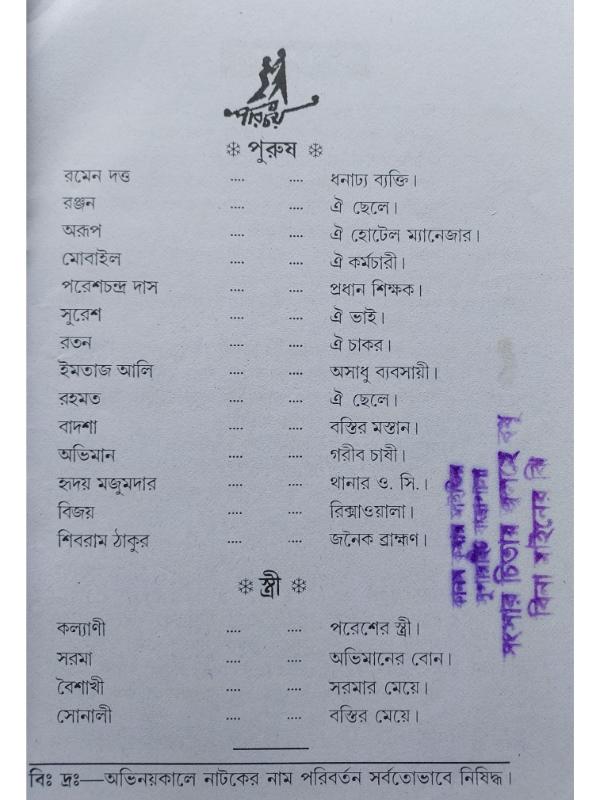 পরিচয়
❊ পুরুষ ❊
রমেন দত্ত .... .... ধনাঢ্য ব্যক্তি।
রঞ্জন .... .... ঐ ছেলে।
অরূপ .... .... ঐ হোটেল ম্যানেজার।
মোবাইল .... .... ঐ কর্মচারী।
পরেশচন্দ্র দাস .... .... প্রধান শিক্ষক।
সুরেশ .... .... ঐ ভাই।
রতন .... .... ঐ চাকর।
ইমতাজ আলি .... .... অসাধু ব্যবসায়ী।
রহমত .... .... ঐ ছেলে।
বাদশা .... .... বস্তির মস্তান।
অভিমান .... .... গরীব চাষী।
হৃদয় মজুমদার .... .... থানার ও. সি.।
বিজয় .... .... রিক্সাওয়ালা।
শিবরাম ঠাকুর .... .... জনৈক ব্রাহ্মণ।
❊ স্ত্রী ❊
কল্যাণী .... .... পরেশের স্ত্রী।
সরমা .... .... অভিমানের বোন।
বৈশাখী .... .... সরমার মেয়ে।
সোনালী .... .... বস্তির মেয়ে।
বিঃ দ্রঃ—অভিনয়কালে নাটকের নাম পরিবর্তন সর্বতোভাবে নিষিদ্ধ।
চিতায় জ্বলছে
বিনা